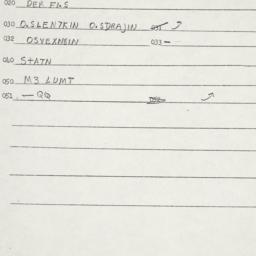 020 DER FLS
030 O.SLENZKIN O.SDRAJIN
032 OSVEXNEIN 033 —
040 STATN
050 M3 LUMT
051 — QQ